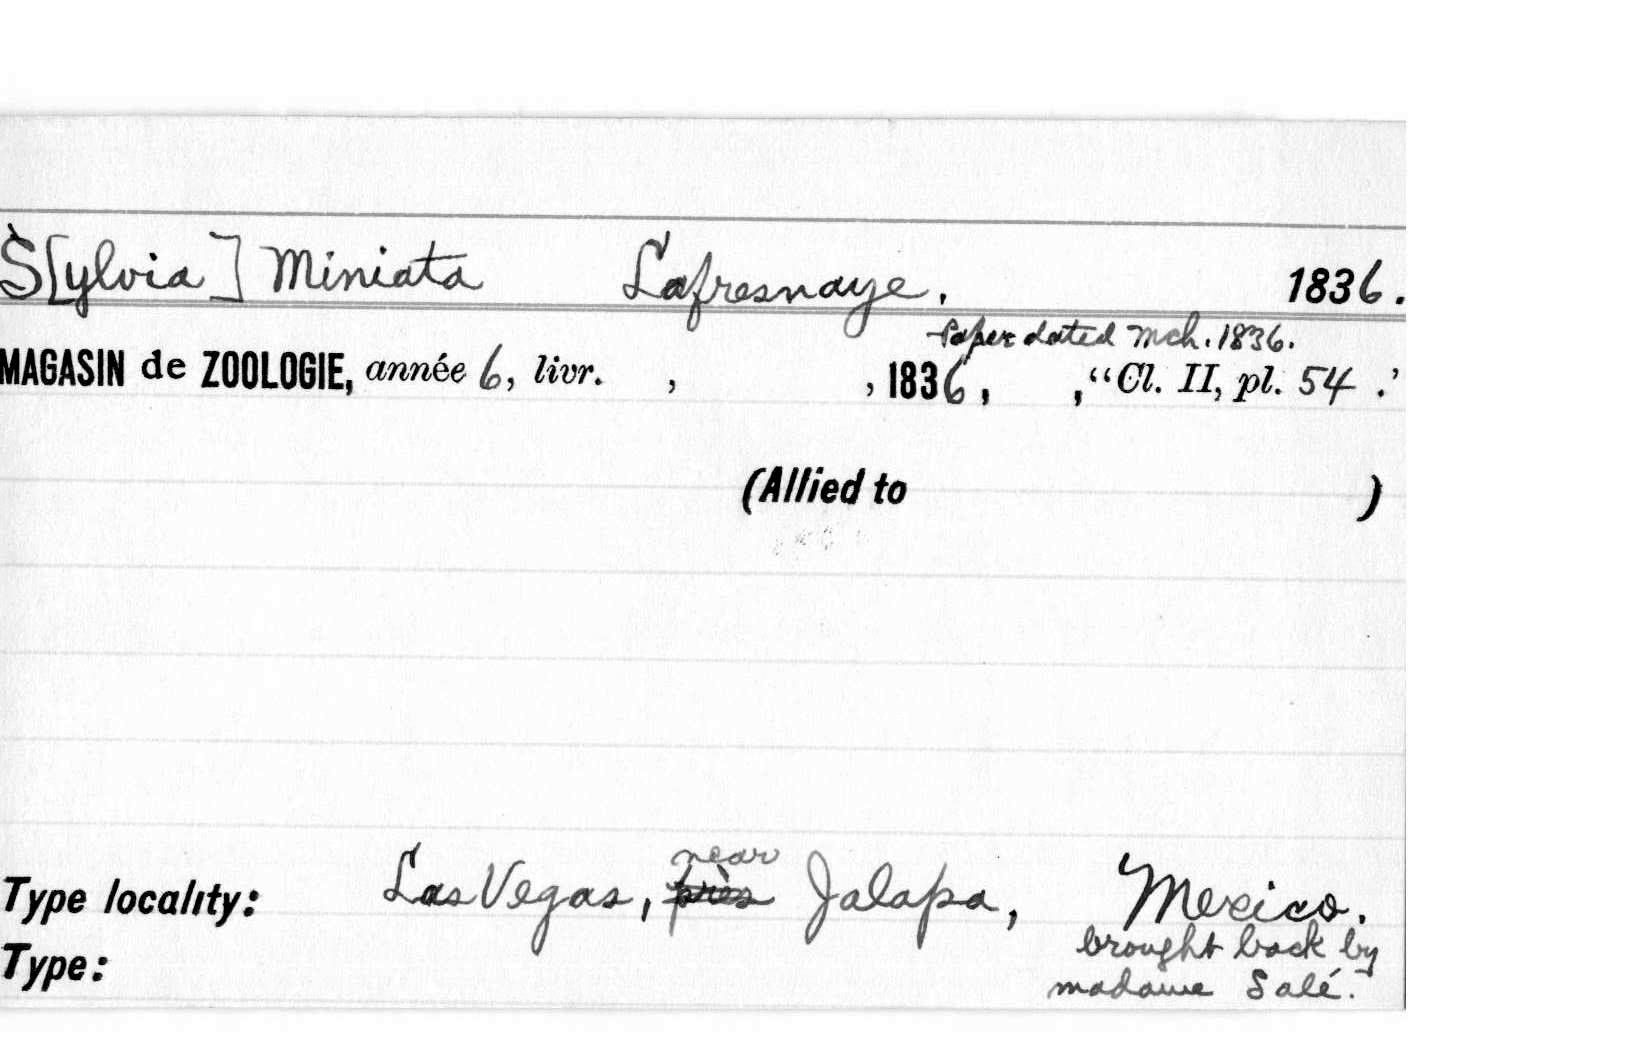 S[ylvia] Miniata Lafresnaye. 1836.
Paper dated Mch. 1836.
MAGASIN de ZOOLOGIE, année 6, livr. , , 1836, , "Cl. II, pl. 54 .'
(Allied to )
near
Type locality: Las Vegas, près Jalapa, Mexico.
brought back by
Type:
madame Salé.